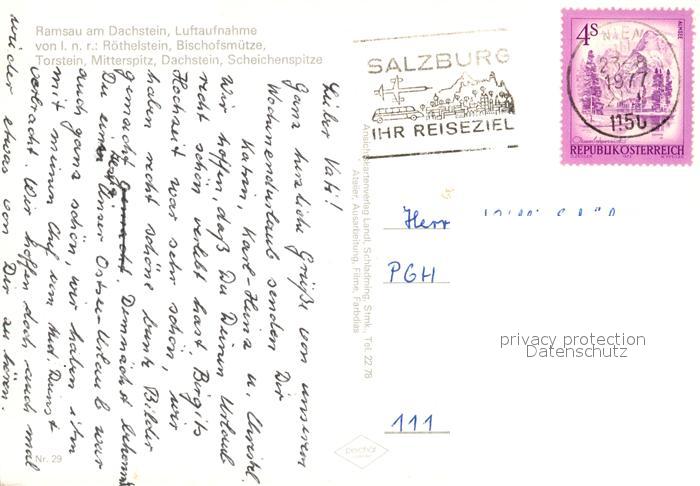 Ramsau am Dachstein, Luftaufnahme
von l. n. r.: Röthelstein, Bischofsmütze,
Torstein, Mitterspitz, Dachstein, Scheichenspitze
SALZBURG
IHR REISEZIEL
WIEN
1977
1150
4S
ALMSEE
REPUBLIK ÖSTERREICH
Lieber Vati!
Ganz herzliche Grüße von unserem
Wochenendurlaub senden Dir
Katrin, Karl-Heinz u. Christel.
Wir hoffen, daß Du Deinen Urlaub
recht schön verlebt hast. Birgits
Hochzeit war sehr schön, wir
haben recht schöne bunte Bilder
gemacht. Demnächst bekommst
Du eins. Unser Ostsee-Urlaub war
auch ganz schön, wir haben ihn
mit meinem Chef vom
verbracht. Wir hoffen doch auch mal
wieder etwas von Dir zu hören.
Ansichtskartenverlag Landl, Schladming, Stmk., Tel. 22 78
Atelier, Ausarbeitung, Filme, Farbdias
Herr
PGH
111
privacy protection
Datenschutz
Nr. 29